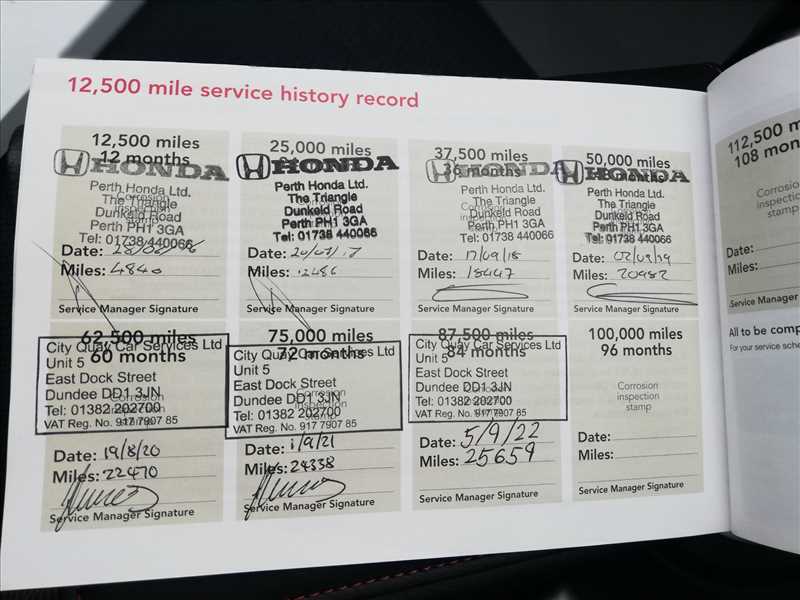 12,500 mile service history record
12,500 miles
12 months
HONDA
Perth Honda Ltd.
The Triangle
Corrosion
inspection
stamp
Dunkeld Road
Perth PH1 3GA
Tel: 01738 440066
Date:
Miles: 4840
Service Manager Signature
25,000 miles
HONDA
Perth Honda Ltd.
The Triangle
Dunkeld Road
Perth PH1 3GA
Tel: 01738 440066
Date: 20/07/17
Miles: 12486
Service Manager Signature
37,500 miles
36 months
HONDA
Perth Honda Ltd.
The Triangle
Dunkeld Road
Perth PH1 3GA
Tel: 01738 440066
Date: 17/09/18
Miles: 18447
Service Manager Signature
50,000 miles
months
HONDA
Perth Honda Ltd.
The Triangle
Dunkeld Road
Perth PH1 3GA
Tel: 01738 440066
Date: 02/09/19
Miles: 20982
Service Manager Signature
62,500 miles
60 months
City Quay Car Services Ltd
Unit 5
East Dock Street
Dundee DD1 3JN
Tel: 01382 202700
VAT Reg. No. 917 7907 85
Date: 19/8/20
Miles: 22470
Service Manager Signature
75,000 miles
72 months
City Quay Car Services Ltd
Unit 5
East Dock Street
Corrosion
inspection
Dundee DD1 3JN
Tel: 01382 202700
VAT Reg. No. 917 7907 85
Date: 1/9/21
Miles: 24338
Service Manager Signature
87,500 miles
84 months
City Quay Car Services Ltd
Unit 5
East Dock Street
Dundee DD1 3JN
Tel: 01382 202700
VAT Reg. No. 917 7907 85
Date: 5/9/22
Miles: 25659
Service Manager Signature
100,000 miles
96 months
Corrosion
inspection
stamp
Date:
Miles:
Service Manager Signature
112,500 m
108 mon
Corrosion
inspection
stamp
Date:
Miles:
Service Manager
All to be comp
For your service sche